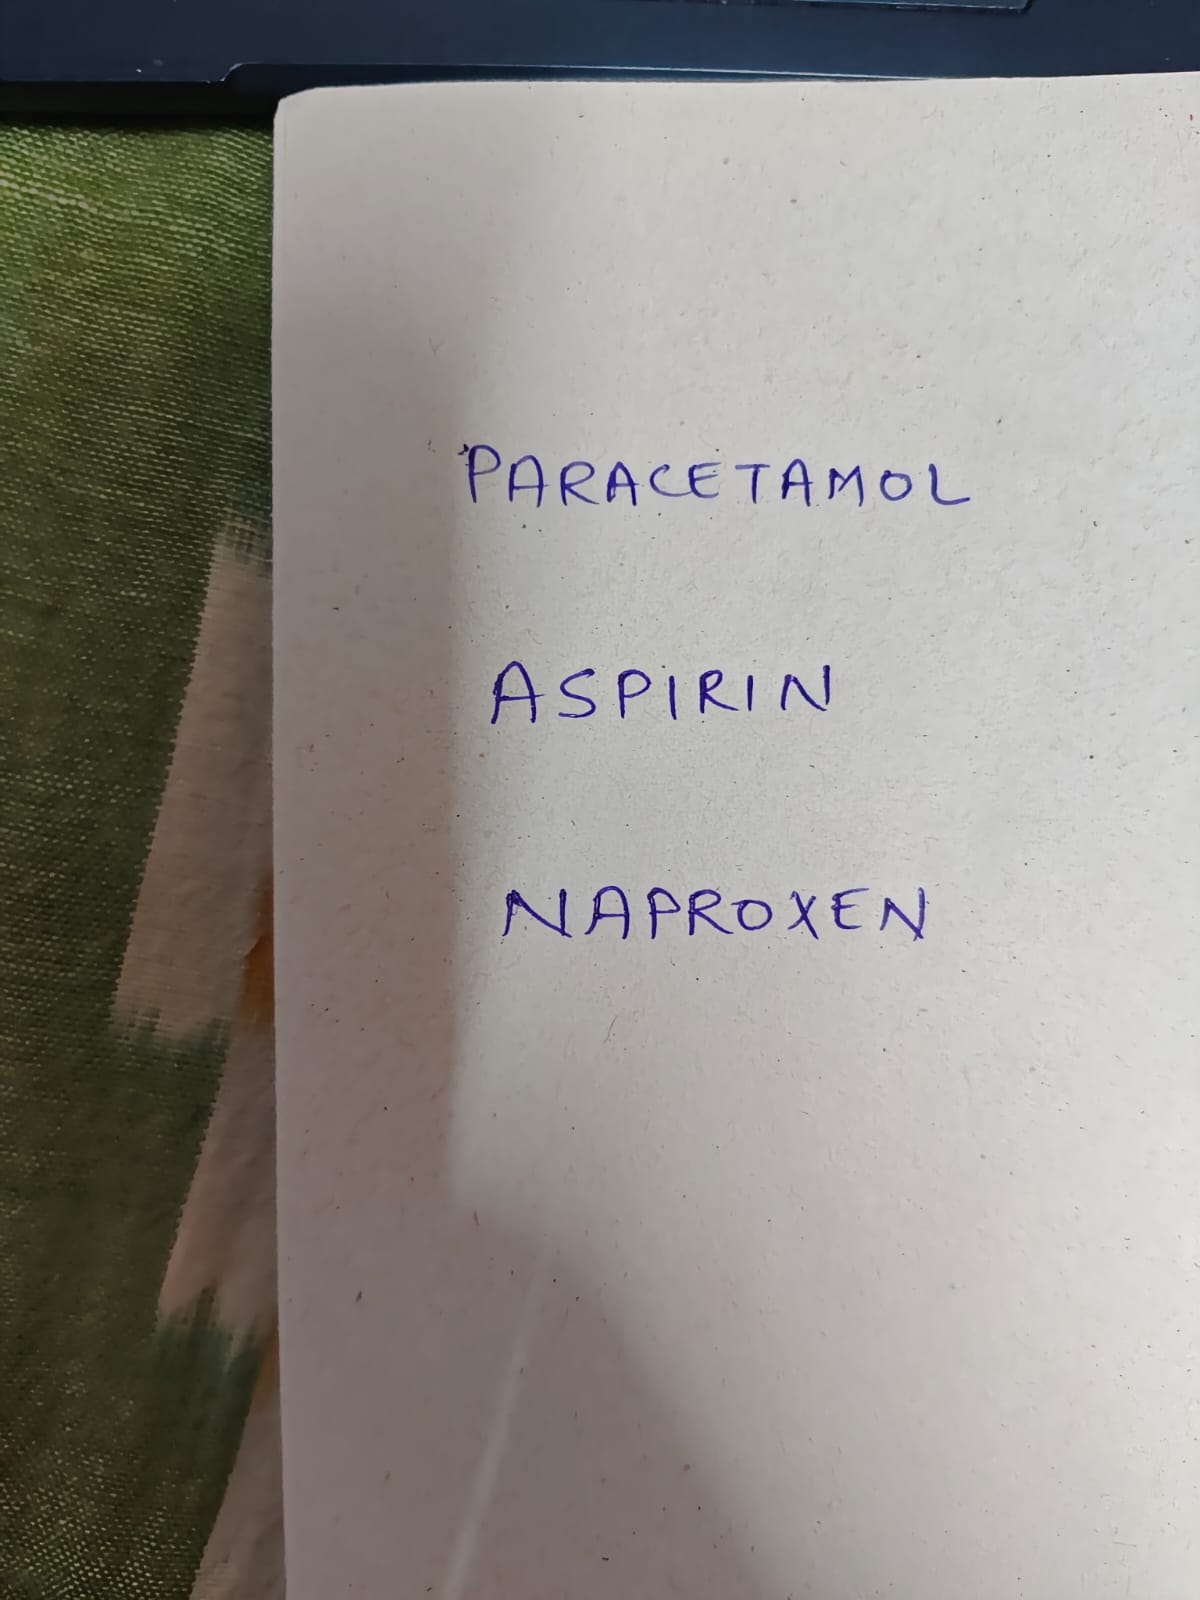 PARACETAMOL
ASPIRIN
NAPROXEN